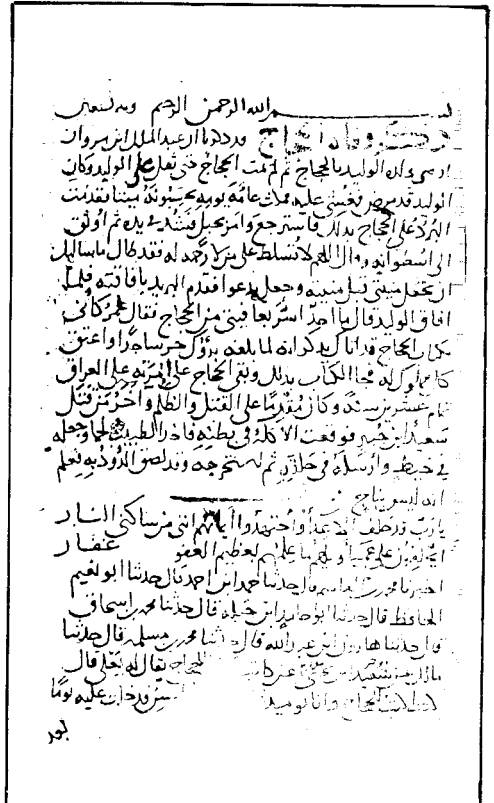 بسم الله الرحمن الرحيم وبه نستعين
ذكر وفاة الحجاج وقد ذكرنا ان عبد الملك ابن مروان
اوصى ولده الوليد بالحجاج ثم لم يمت الحجاج حتى ثقل على الوليد وكان
الوليد قد مرض فغشي عليه فمكث عامة يومه يحسبونه ميتا فقدمت
البرد على الحجاج بذلك فاسترجع وامر بحبل فشد في يده ثم اوثق
الى اسطوانة وقال اللهم لا تسلط علي من لا رحمة له فقد طال ما سالتك
ان تجعل منيتي قبل منيته وجعل يدعو فقدم البريد بافاقته فلما
افاق الوليد قال ما احد اسر بعافيتي من الحجاج فقال عمر كاني
بكتاب الحجاج قد اتاك يذكر انه لما بلغه برؤك خر ساجدا واعتق
كل مملوك له فجا الكتاب بذلك وبقي الحجاج على امرته على العراق
تمام عشرين سنة وكان مقدما على القتل والظلم وآخر من قتل
سعيد ابن جبير فوقعت الاكلة في بطنه فاخذ الطبيب لحما وجعله
في خيط وارسله في حلقه ثم استخرجه وقد لصق الدود به فعلم
انه ليس بناج
يا رب قد حلف الاعداء واجتهدوا ايمانهم انني من ساكني النار
ايحلفون على عمياء ويحهم ما علمهم بعظيم العفو غفار
اخبرنا محمد قال حدثنا حمد ابن احمد قال حدثنا ابو نعيم
الحافظ قال حدثنا ابو حامد ابن جبلة قال حدثنا محمد بن اسحاق
قال حدثنا هارون ابن عبد الله قال حدثنا محمد بن مسلمة قال حدثنا
مالك سعيد يحيى الحجاج يقال له يعلى قال
الحجاج وانا يوميذ فدخلت عليه يوما
بعد